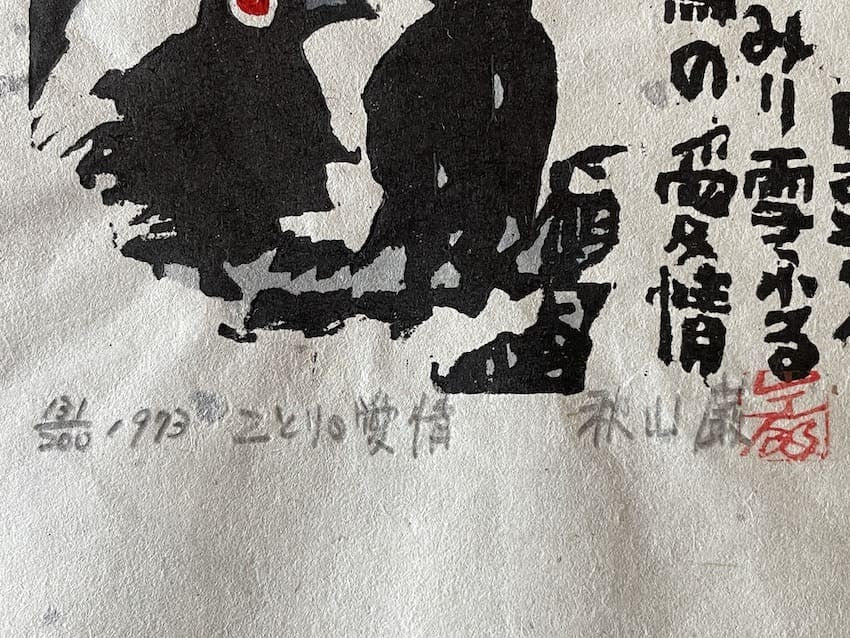 みり雪ふる
の愛情
131/200 1973 ことりの愛情 秋山巌